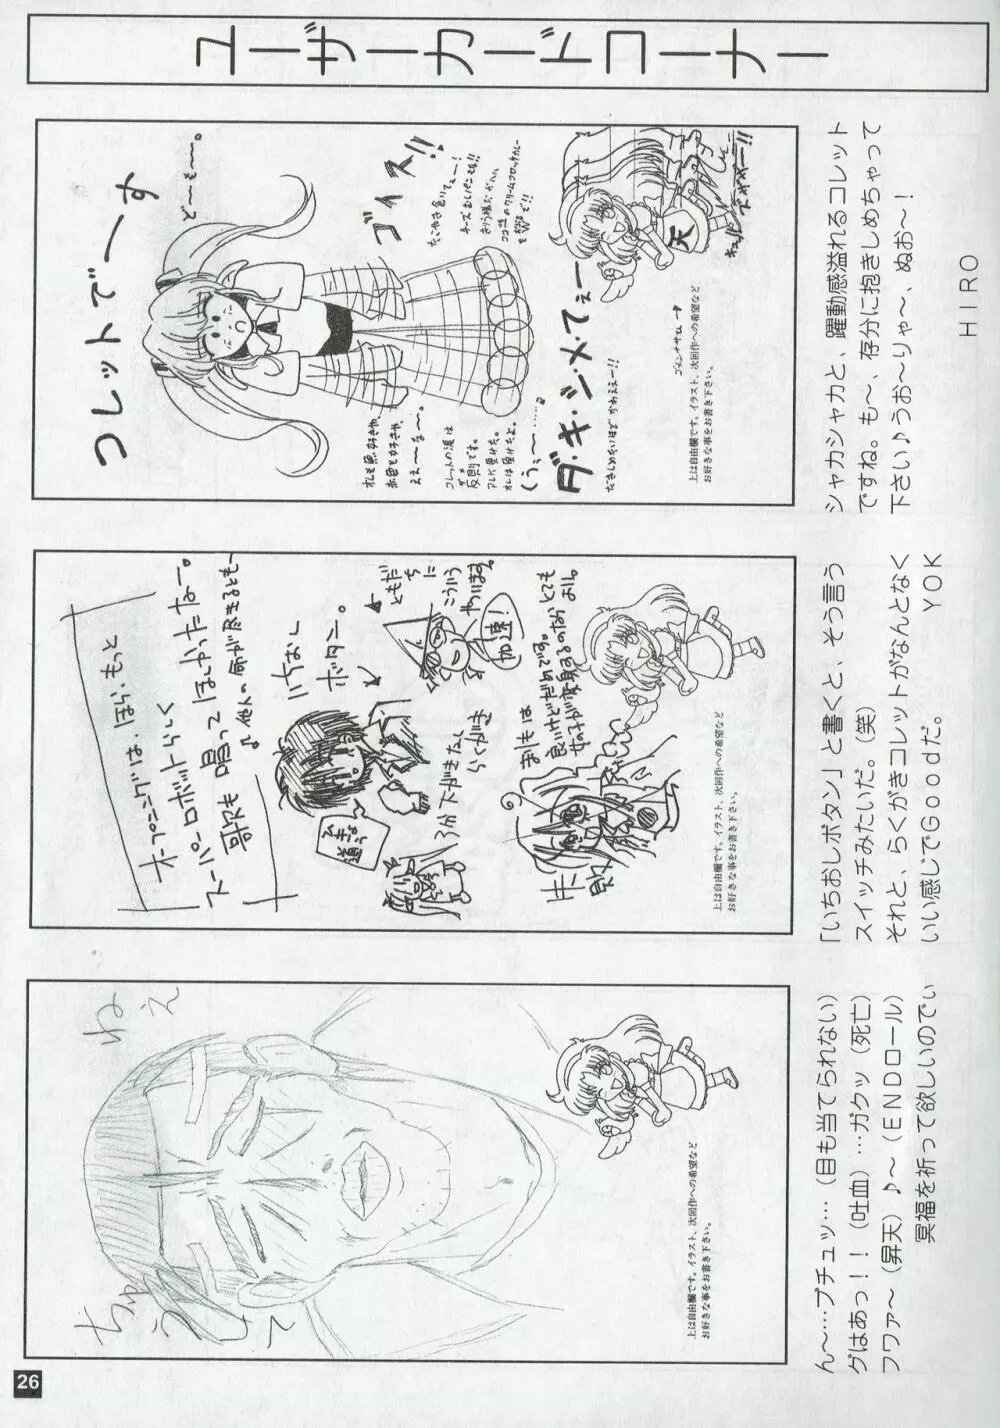 ユーザーカードコーナー
コレットで〜す
ど〜も〜。
ゴイス!!
たこやき食いてぇー!
私も魚好きや
赤色も好きや
えぇ〜な〜。
コレットの涙は
反則です。
オレは受けたよ。
(うぅ〜……♪
ダ・キ・シ・メ・てぇー
だきしめたいほどかわええー!!
天
上は自由欄です。イラスト、次回作への希望など
お好きな事をお書き下さい。
シャカシャカと、躍動感溢れるコレット
ですね。も〜、存分に抱きしめちゃって
下さい♪うお〜りゃ〜、ぬお〜!
HIRO
オープニングは、ほら、もっと
スーパーロボットらしく
歌でも唱ってほしかったなー。
♪他人の命が尽きるとも〜
いちおし
ボタニ。
ともだ
ちに
こういう
やついます。
加速!
3分下がきなし
らくがき
おしもは
良いけどだめです。
女の子が変身するのなら とても
よし。
上は自由欄です。イラスト、次回作への希望など
お好きな事をお書き下さい。
「いちおしボタン」と書くと、そう言う
スイッチみたいだ。(笑)
それと、らくがきコレットがなんとなく
いい感じでGoodだ。 YOK
ねえ
ちゅうして
上は自由欄です。イラスト、次回作への希望など
お好きな事をお書き下さい。
ん〜…ブチュッ…(目も当てられない)
グはあっ!!(吐血)…ガクッ(死亡)
フワァ〜(昇天)♪〜(ENDロール)
冥福を祈って欲しいのでぃ
26